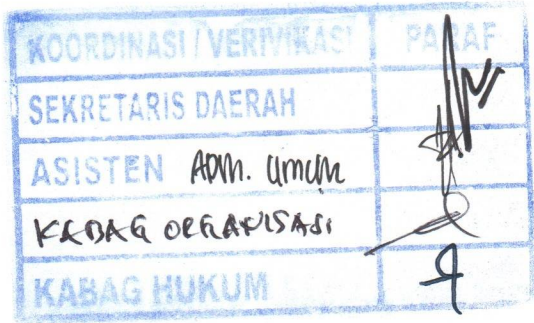 KOORDINASI / VERIVIKASI PARAF
SEKRETARIS DAERAH
ASISTEN ADM. UMUM
KABAG ORGANISASI
KABAG HUKUM